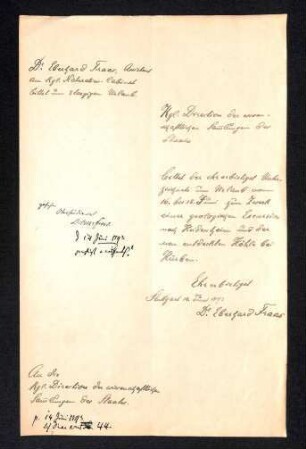 Dr. Eberhard Fraas, Assistent
am Kgl. Naturalien-Cabinet
bittet um Urlaub
Kgl. Direction der wissen-
schaftlichen Sammlungen des
Staats
bittet der ehrerbietigst Unter-
zeichnete um Urlaub vom
16. bis 18. Juni zum Zweck
einer geologischen Excursion
nach Heidenheim und der
neu entdeckten Höhle bei
Hürben.
Ehrerbietigst
Stuttgart Juni 1893
Dr. Eberhard Fraas
14 Juni 1893
An die
Kgl. Direction der wissenschaftlichen
Sammlungen des Staats
p. 14 Juni 1893
44.